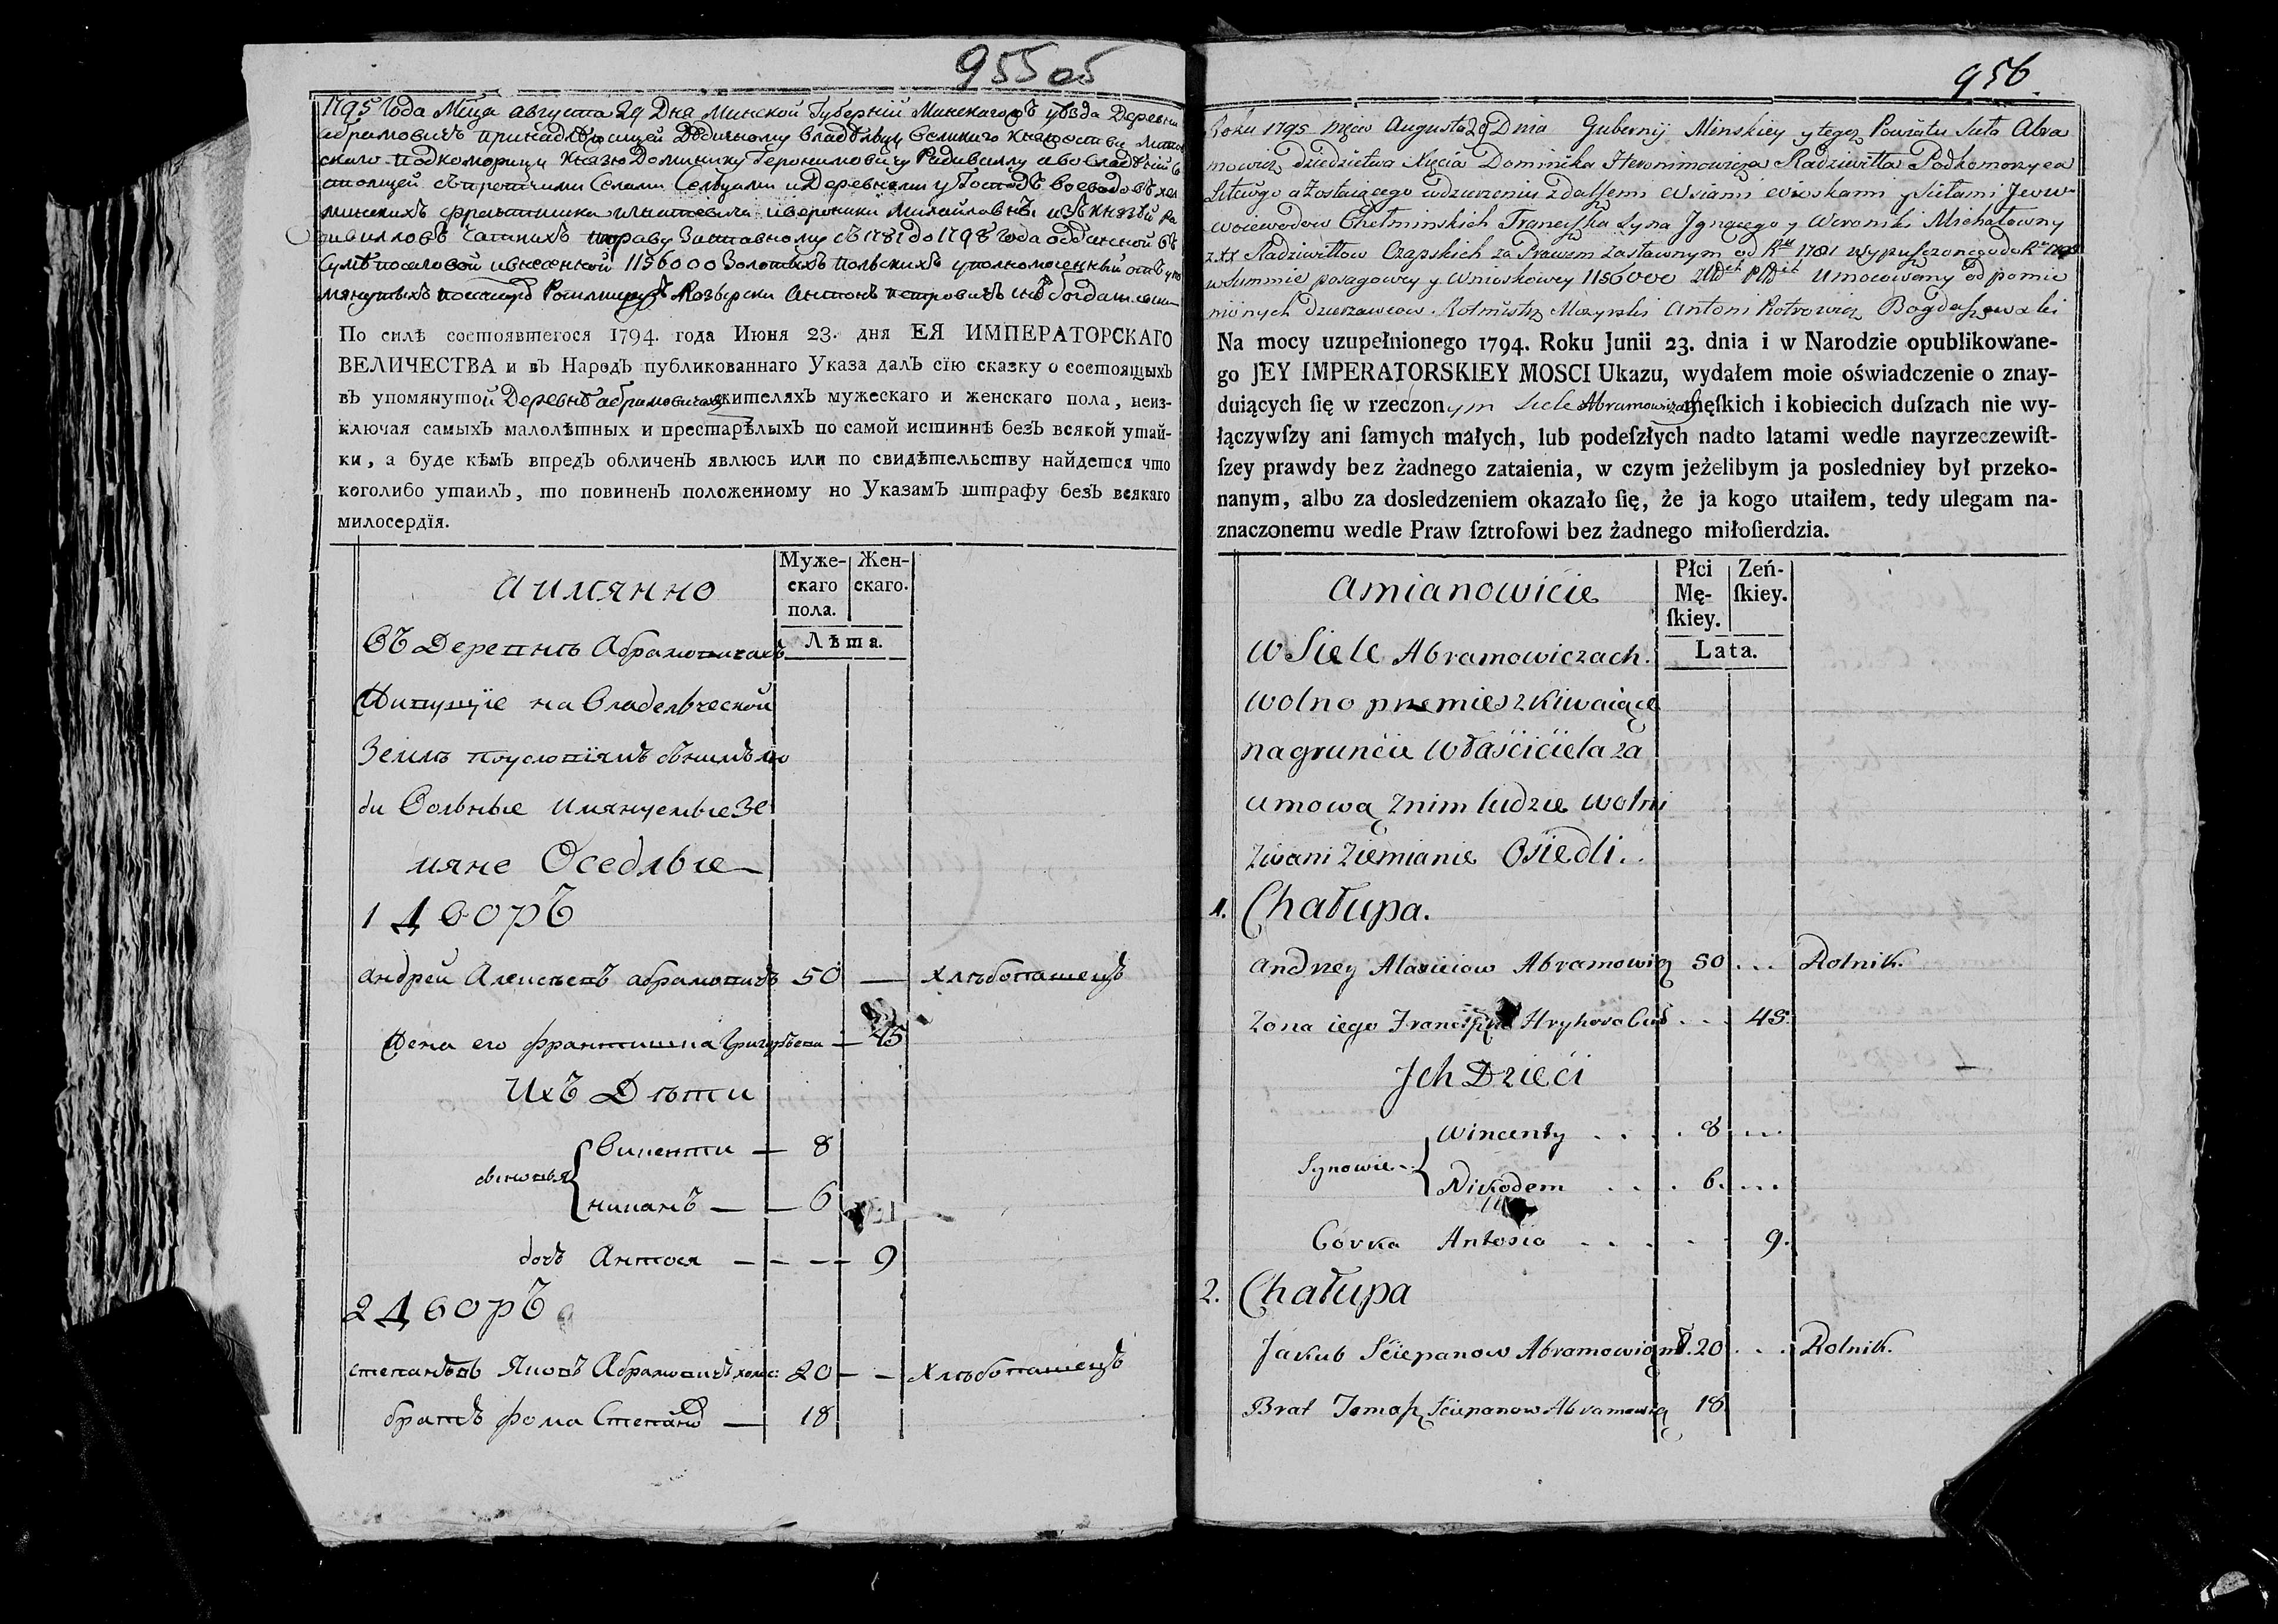 955 об
1795 года Мца августа 29 Дня Минской Губернии Минскагожъ уѣзда Деревни
абрамовичъ принадлежащей Дедичному владѣльцу Великого Княжества Литов
скаго подкоморицу Князю Доминику Геронимовичу Радивиллу а во владѣнiи со
стоящей съ протчими Селами Сельцами и Деревнями у Господъ воеводовъ хел
минскихъ франтишка игнатьевича и вероники Михайловны изъ князей Ра
дивилловъ Чапскихъ по праву Заставному съ 1781 до 1798 года отданной въ
Сумѣ посаговой и внесенной 1156000 Золотыхъ польскихъ уполномоченный отъ упо
мянутыхъ Ротмистръ Мозырски Антонъ петровичъ богдашевски
По силѣ состоявшегося 1794. года Июня 23. дня ЕЯ ИМПЕРАТОРСКАГО
ВЕЛИЧЕСТВА и въ Народъ публикованнаго Указа далъ сїю сказку о состоящыхъ
въ упомянутой Деревнѣ абрамовичахъ жителяхъ мужескаго и женскаго пола, неиз-
ключая самыхъ малолѣтныхъ и престарѣлыхъ по самой истиннѣ безъ всякой утай-
ки, а буде кѣмъ впредь обличенъ явлюсь или по свидѣтельству найдется что
коголибо утаилъ, то повиненъ положенному по Указамъ штрафу безъ всякаго
милосердїя.
а имянно
Муже-
скаго
пола.
Жен-
скаго.
Лѣта.
Въ Деревнѣ Абрамовичахъ
Живущїе на Владельческой
Землѣ поусловїямъ сънимъ лю
ди Вольные имянуемые Зе
мяне Оседлые
1 дворъ
андрей Алексѣевъ абрамовичъ 50 — хлѣбопашецъ
Жена его франтишка Григорьева — 45
Ихъ Дѣти
сыновья { Викенти — 8
никанъ — — 6
дочь Антося — — — 9
2 дворъ
степановъ Яковъ Абрамовичъ холос: 20 — — хлѣбопашецъ
братъ фома Степановъ — 18
956.
Roku 1795 mca Augusta 29 Dnia Gubernij Minskiey y tegoż Powiatu Sieła Abra
mowicz dziedzictwa Xięcia Dominika Hieronimowicza Radziwiłła Podkomorzyca
Litewgo a Zostaiącego w dzierżeniu z dalszemi Wsiami wioskami y Siełami Jww
woiewodow Chełminskich Franciszka Syna Jgnacego y Weroniki Michałowny
z XX Radziwiłłow Czapskich za Prawem zastawnym od Rku 1781 wypuszczonego do Rku 1798
w Summie posagowey y Wnioskowey 1156000 Umocowany od pomie
nionych dzierzawcow Rotmistrz Mozyrski Antoni Piotrowicz Bogdaszewski
Na mocy uzupełnionego 1794. Roku Junii 23. dnia i w Narodzie opublikowane-
go JEY IMPERATORSKIEY MOSCI Ukazu, wydałem moie oświadczenie o znay-
duiących ſię w rzeczonym Siele Abramowiczach męſkich i kobiecich duſzach nie wy-
łączywſzy ani ſamych małych, lub podeſzłych nadto latami wedle nayrzeczewiſt-
ſzey prawdy bez żadnego zataienia, w czym jeżelibym ja posledniey był przeko-
nanym, albo za dosledzeniem okazało ſię, że ja kogo utaiłem, tedy ulegam na-
znaczonemu wedle Praw ſztrofowi bez żadnego miłoſierdzia.
amianowicie
Płci
Mę-
ſkiey.
Zeń-
ſkiey.
Lata.
w Siele Abramowiczach.
wolno przemieszkiwaiące
na gruncie Właściciela za
umową z nim ludzie wolni
zwani Ziemianie Osiedli.
1. Chałupa.
Andrzey Alaxieiow Abramowicz 50 ... Rolnik.
Zona iego Franciszka Hryhora Curka ... 45.
Jch Dzieci
Synowie { Wincenty .... 8 ...
Nikodem .... 6. ...
Corka Antosia .... 9.
2. Chałupa
Jakub Sciepanow Abramowicz 20 ... Rolnik.
Brat Tomasz Sciepanow Abramowicz 18